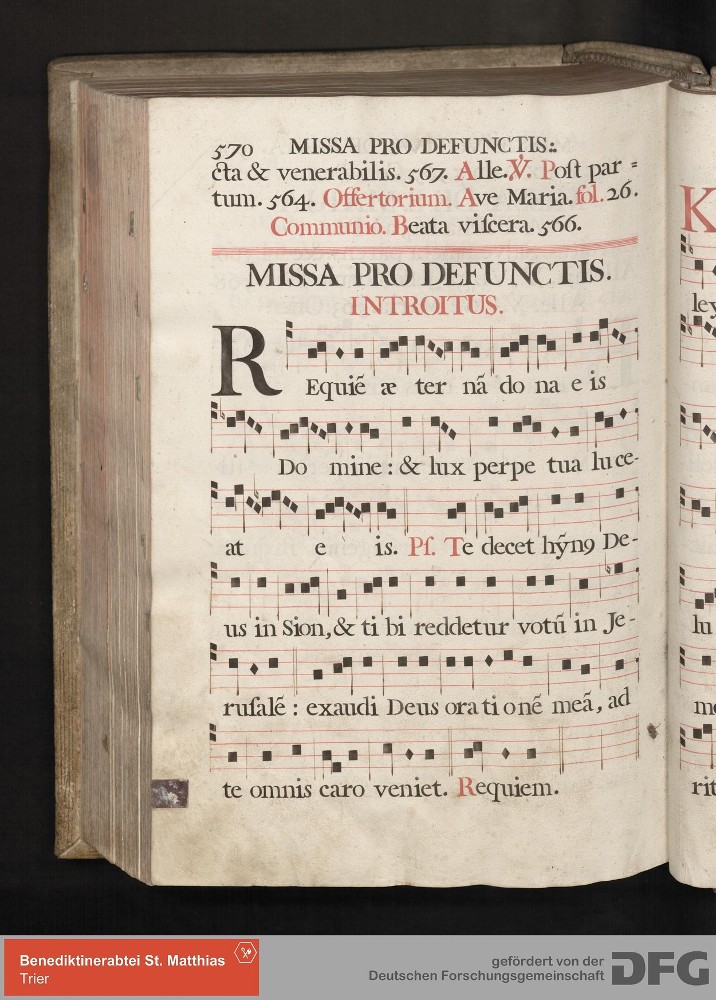 570 MISSA PRO DEFUNCTIS:.
cta & venerabilis. 567. Alle. ℣. Poſt par=
tum. 564. Offertorium. Ave Maria. fol. 26.
Communio. Beata viſcera. 566.
MISSA PRO DEFUNCTIS.
INTROITUS.
REquiẽ æ ter nã do na e is
Do mine: & lux perpe tua luce-
at e is. Pſ. Te decet hỹn9 De-
us in Sion, & ti bi reddetur votũ in Je-
ruſalẽ: exaudi Deus ora ti onẽ meã, ad
te omnis caro veniet. Requiem.
K
ley
lu
me
rit
Benediktinerabtei St. Matthias
Trier
gefördert von der
Deutschen Forschungsgemeinschaft DFG